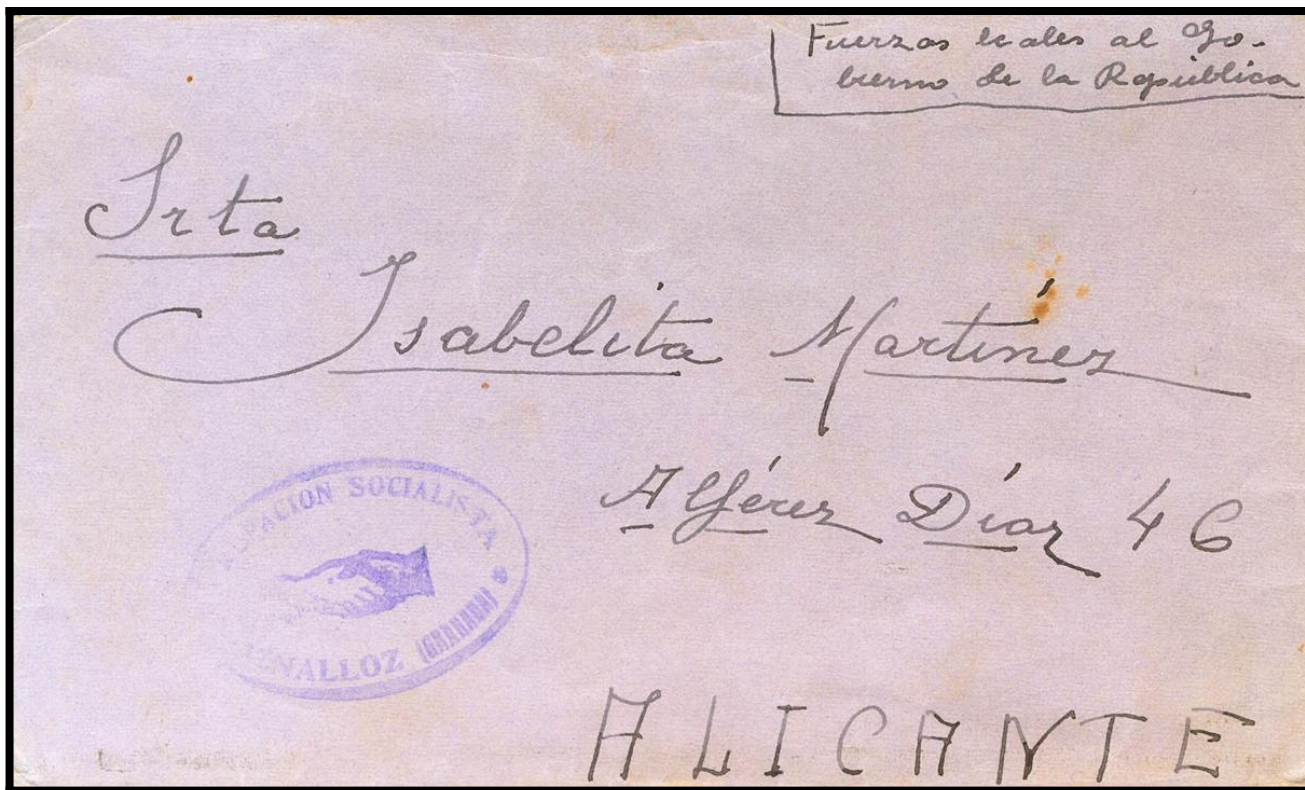 Fuerzas leales al Go-
bierno de la República
Srta
Isabelita Martínez
Alférez Díaz 46
UPACION SOCIALISTA
NALLOZ (GRANADA)
ALICANTE